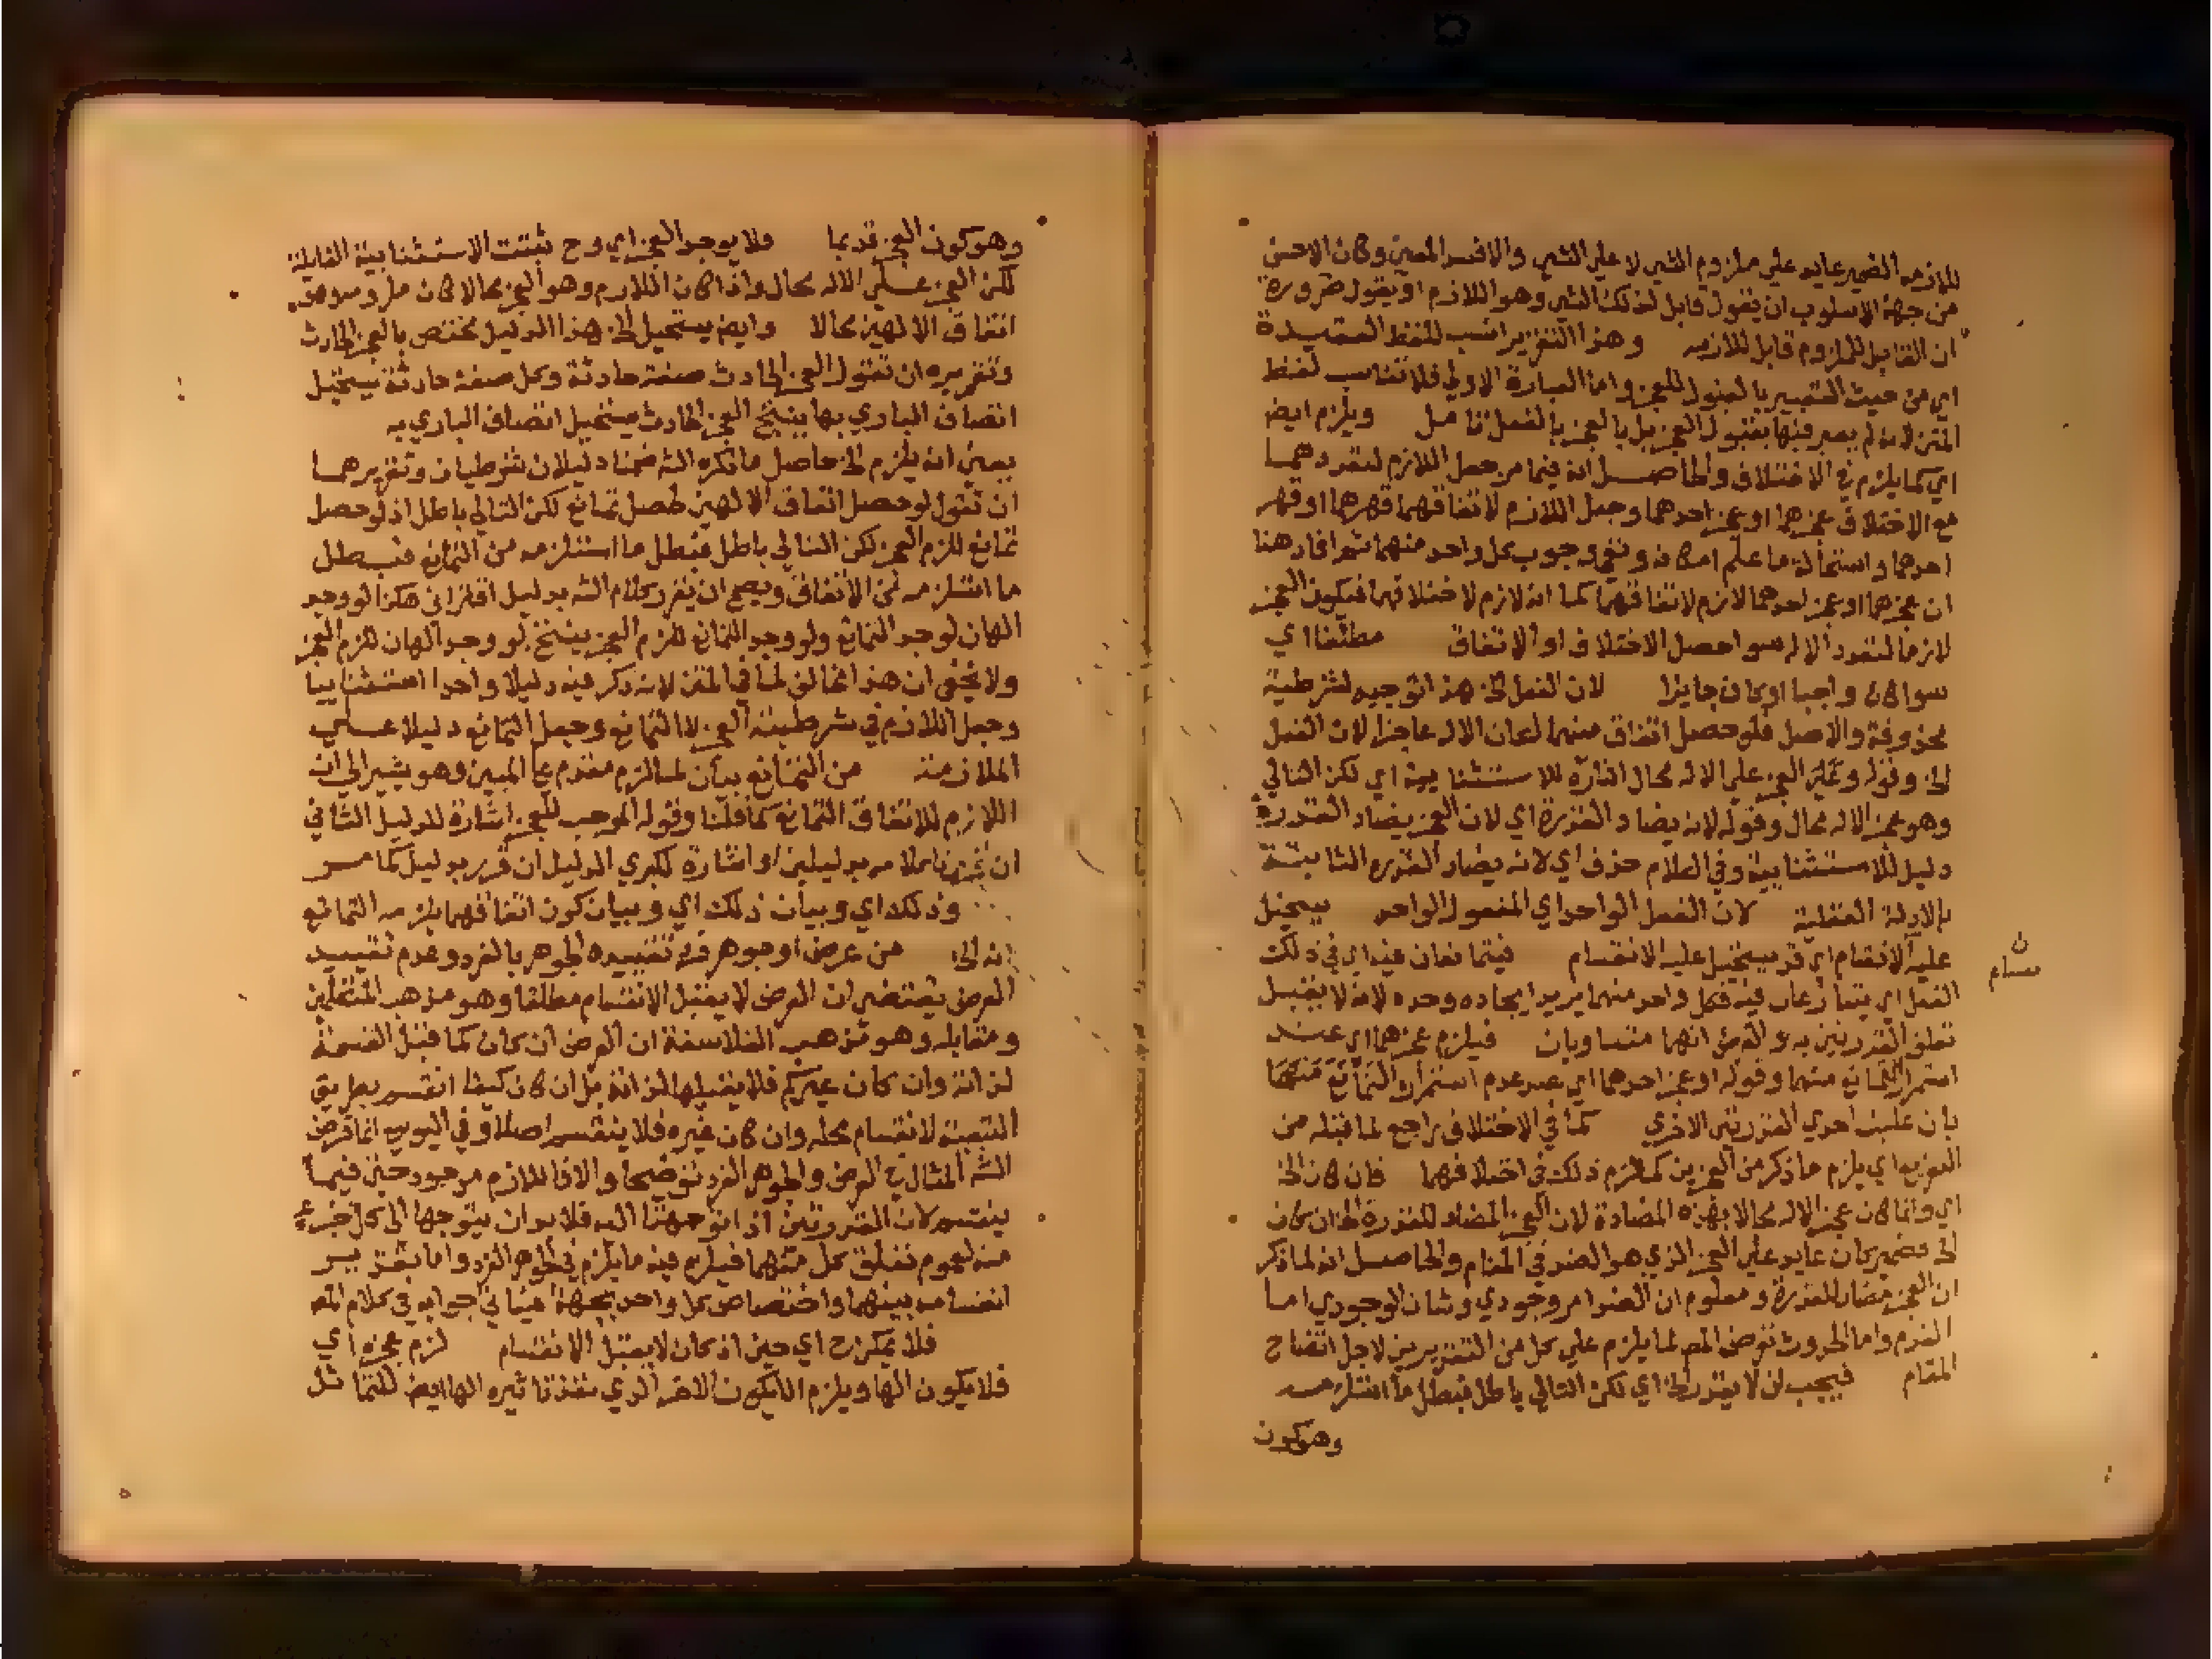 للازمه الضمير عايد علي ملزوم الشي لا علي الشي والافسد المعني وكان الاحسن
من جهة الاسلوب ان يقول قابل لذلك الشي وهو اللازم او يقول ضرورة
ان القابل للملزوم قابل للازمه وهذا التقرير انسب للفظ العقيدة
اي من حيث التعبير بالقبول للعجز واما العبارة الاولي فلا تناسب لفظ
المتن لانه لم يعبر فيها بقبول العجز بل بالعجز بالفعل تامل ويلزم ايض
اي كما يلزم في الاختلاف والحاصل انه فيما مر جعل اللازم لتعددهما
مع الاختلاف عجزهما او عجز احدهما وجعل اللازم لاتفاقهما قهرهما او قهر
احدهما واستحالة ما علم امكانه ونفي وجوب كل واحد منهما ثم افاد هنا
ان عجزهما او عجز احدهما لازم لاتفاقهما كما انه لازم لاختلافهما فيكون العجز
لازما لتعدد الاله سوا حصل الاختلاف او الاتفاق مطلقا اي
سوا كان واجبا او كان جايزا لان الفعل الخ هذا توجيه لشرطية
محذوفة والاصل فلو حصل اتفاق منهما لكان الاله عاجزا لان الفعل
الخ وقوله وعجز العجز علي الاله محال اشارة للاستثنايية اي لكن التالي
وهو عجز الاله محال وقوله لانه يضاد القدرة اي لان العجز يضاد القدرة
دليل للاستثنايية وفي الكلام حذف اي لانه يضاد القدرة الثابتة
بالادلة العقلية لان الفعل الواحد اي المفعول الواحد يستحيل
عليه الانقسام اي قد يستحيل عليه الانقسام فيتمانعان فيه اي في ذلك
ن
مسام
الفعل اي يتنازعان فيه فكل واحد منهما يريد ايجاده وحده لانه لا يقبل
تعلق القدرتين به والفرض انهما متساويان فيلزم عجزهما اي عند
استمرار التمانع منهما وقوله او عجز احدهما اي عند عدم استمرار التمانع منهما
بان غلبت احدي القدرتين الاخري كما في الاختلاف راجع لما قبله من
التفريع اي يلزم ما ذكر من العجزين كما لزم ذلك في اختلافهما فان كان الخ
اي وانما كان عجز الاله محالا بهذه المضادة لان العجز المضاد للقدرة الخ ان كان
الخ فضمير كان عايد علي العجز الذي هو الضد في المقام والحاصل انه لما ذكر
ان العجز مضاد للقدرة ومعلوم ان الضد امر وجودي وشان الوجودي اما
القدم واما الحدوث تعرض المص لما يلزم علي كل من التقديرين لاجل اتضاح
المقام فيجب ان لا يقدر الخ اي لكن التالي باطل فبطل ما استلزمه
وهو كون
وهو كون العجز قديما فلا يوجد العجز اي وح ثبتت الاستثنايية القايلة
لكن العجز علي الاله محال واذا كان اللازم وهو العجز محالا كان ملزومه وهو
اتفاق الالهين محالا وايض يستحيل الخ هذا الدليل مختص بالعجز الحادث
وتقريره ان تقول العجز الحادث صفة حادثة وكل صفة حادثة يستحيل
اتصاف الباري بها ينتج العجز الحادث يستحيل اتصاف الباري به
يعني انه يلزم الخ حاصل ما ذكره الشه ضمنا دليلان شرطيان وتقريرهما
ان تقول لو حصل اتفاق الالهين لحصل تمانع لكن التالي باطل اذ لو حصل
تمانع للزم العجز لكن التالي باطل فبطل ما استلزمه من التمانع فبطل
ما استلزمه من الاتفاق ويصح ان يقرر كلام الشه بدليل اقتراني هكذا لو وجد
الهان لوجد التمانع ولو وجد التمانع للزم العجز ينتج لو وجد الهان للزم العجز
ولا يخفي ان هذا مخالف لما في المتن لانه ذكر فيه دليلا واحدا استثناييا
وجعل اللازم في شرطيته العجز لا التمانع وجعل التمانع دليلا علي
الملازمة من التمانع بيان لما لزم مقدم علي المبين وهو يشير الي ان
اللازم للاتفاق التمانع كما قلنا وقوله الموجب للعجز اشارة للدليل الثاني
ان قررنا كلامه بدليلين او اشارة لكبري الدليل ان قرر بدليل كما مر
وذلك اي وبيان ذلك اي وبيان كون اتفاقهما يلزمه التمانع
انه الخ من عرض او جوهر فرد تقييده الجوهر بالفرد وعدم تقييد
العرض يقتضي ان العرض لا يقبل الانقسام مطلقا وهو مذهب المتكلمين
ومقابله وهو مذهب الفلاسفة ان العرض ان كان كما قبل القسمة
لذاته وان كان غير كم فلا يقبلها لذاته بل ان كان كيفا انقسم بطريق
التبعية لانقسام محله وان كان غيره فلا ينقسم اصلا وفي اليوسي انما فرض
الشه المثال في العرض والجوهر الفرد توضيحا والا فاللازم موجود حتي فيما
ينقسم لان القدرتين اذا توجهتا اليه فلا بد ان يتوجها الي كل جزء
منه لعموم تعلق كل منهما فيلزم فيه ما يلزم في الجوهر الفرد واما بتقدير
انقسامه بينهما واختصاص كل واحد بجهة فياتي جوابه في كلام المص
فلا يمكن ح اي حين اذ كان لا يقبل الانقسام لزم عجزه اي
فلا يكون الها ويلزم ان لا يكون الاخر الذي نفذ تاثيره الها ايض للتماثل